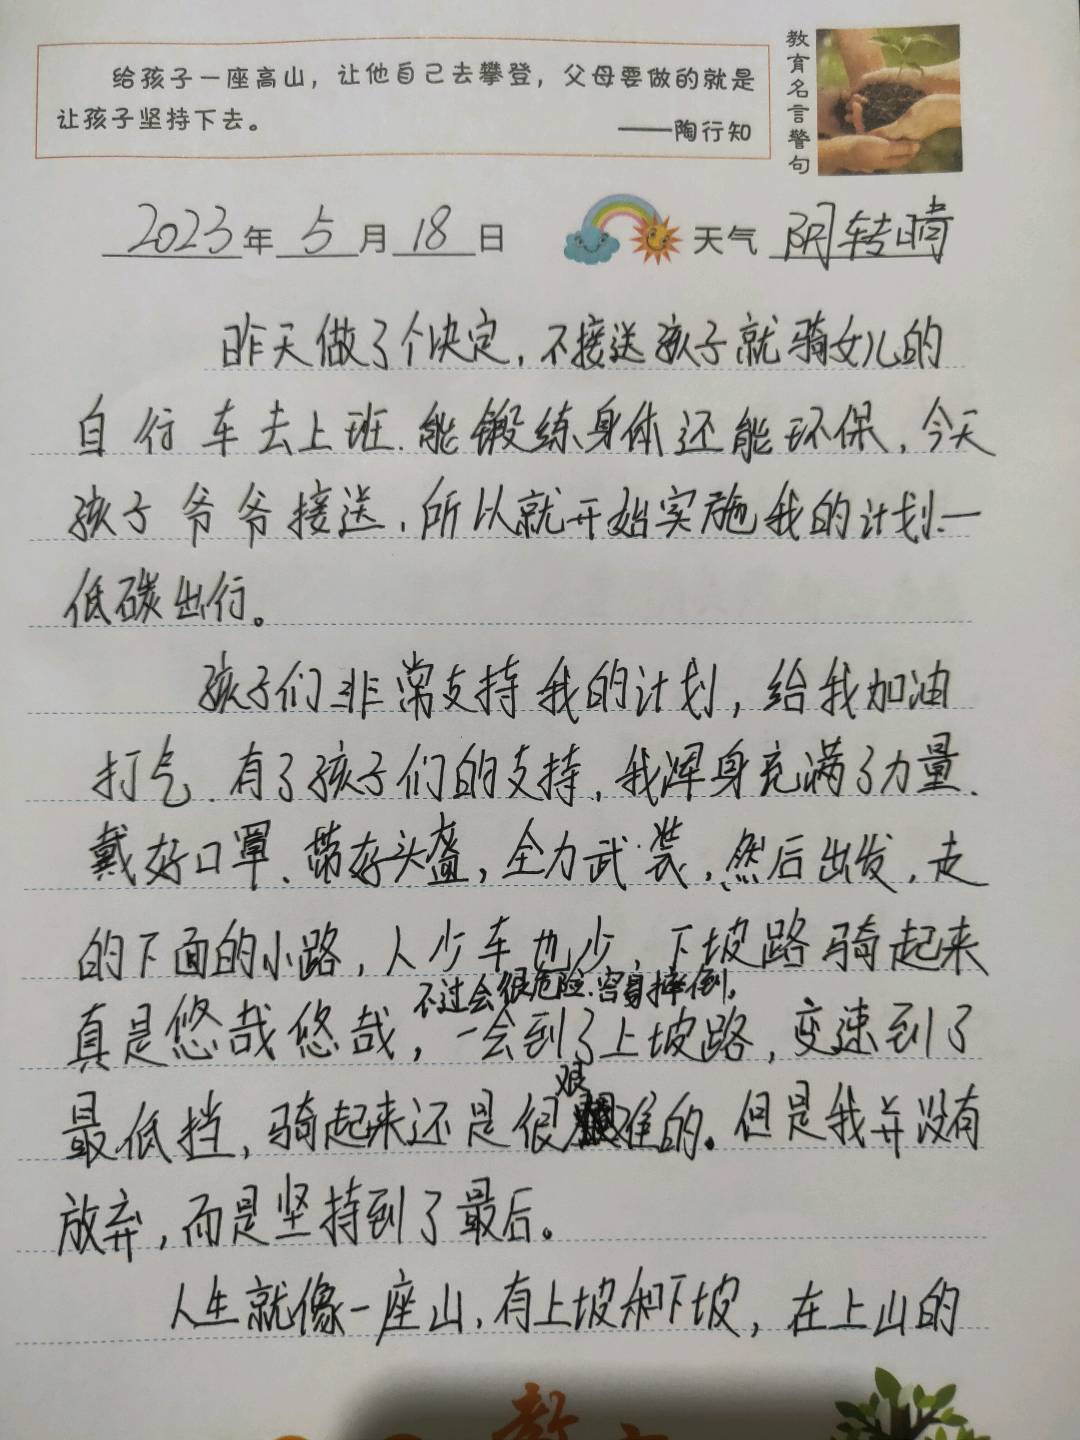 给孩子一座高山，让他自己去攀登，父母要做的就是
让孩子坚持下去。
——陶行知
教育名言警句
2023年 5月 18日 天气 阴转晴
昨天做了个决定，不接送孩子就骑女儿的
自行车去上班.能锻练身体还能环保，今天
孩子爷爷接送，所以就开始实施我的计划—
低碳出行。
孩子们非常支持我的计划，给我加油
打气.有了孩子们的支持，我浑身充满了力量.
戴好口罩、带好头盔，全力武装，然后出发，走
的下面的小路，人少车也少，下坡路骑起来
不过会很危险.容易摔倒，
真是悠哉悠哉，一会到了上坡路，变速到了
最低挡，骑起来还是很艰难的。但是我并没有
放弃，而是坚持到了最后。
人生就像一座山，有上坡和下坡，在上山的
教